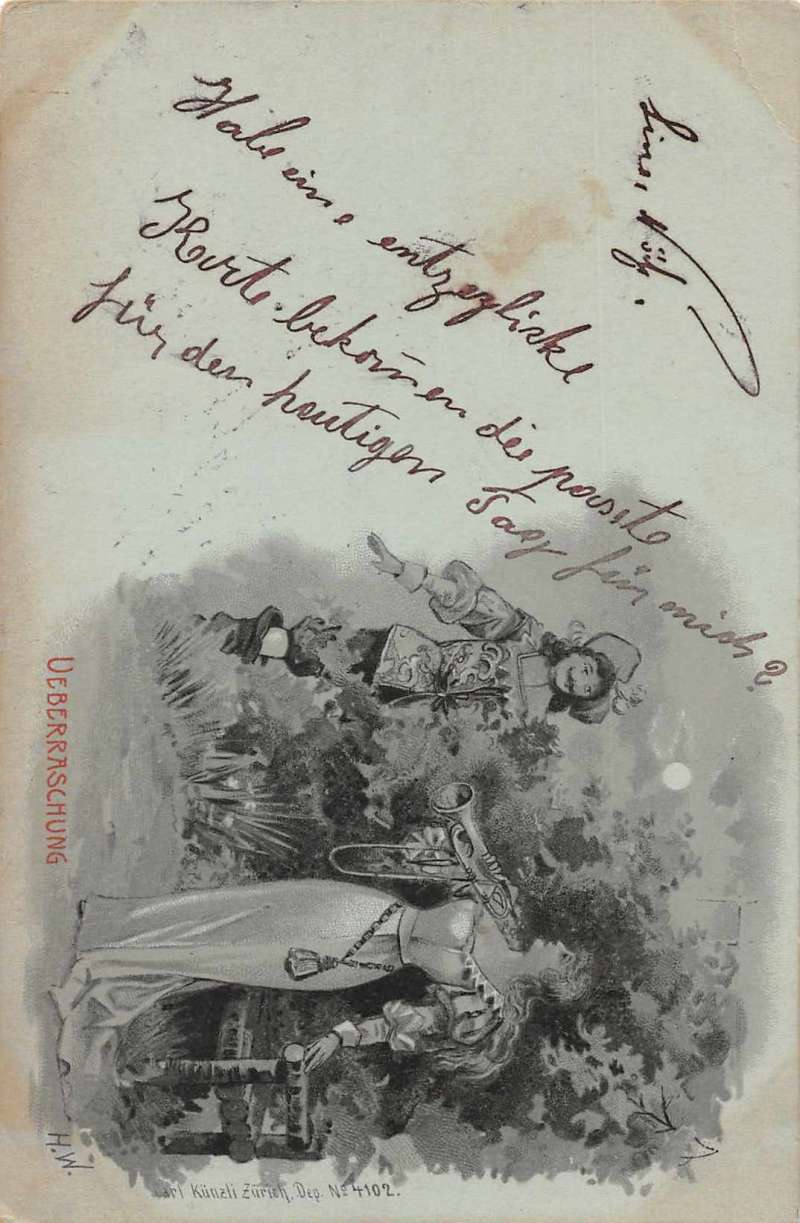 Habe eine entzegliche
Karte bekommen die passte
für den heutigen Tag für mich?
UEBERRASCHUNG
H.W.
Carl Künzli Zürich, Dep. No 4102.